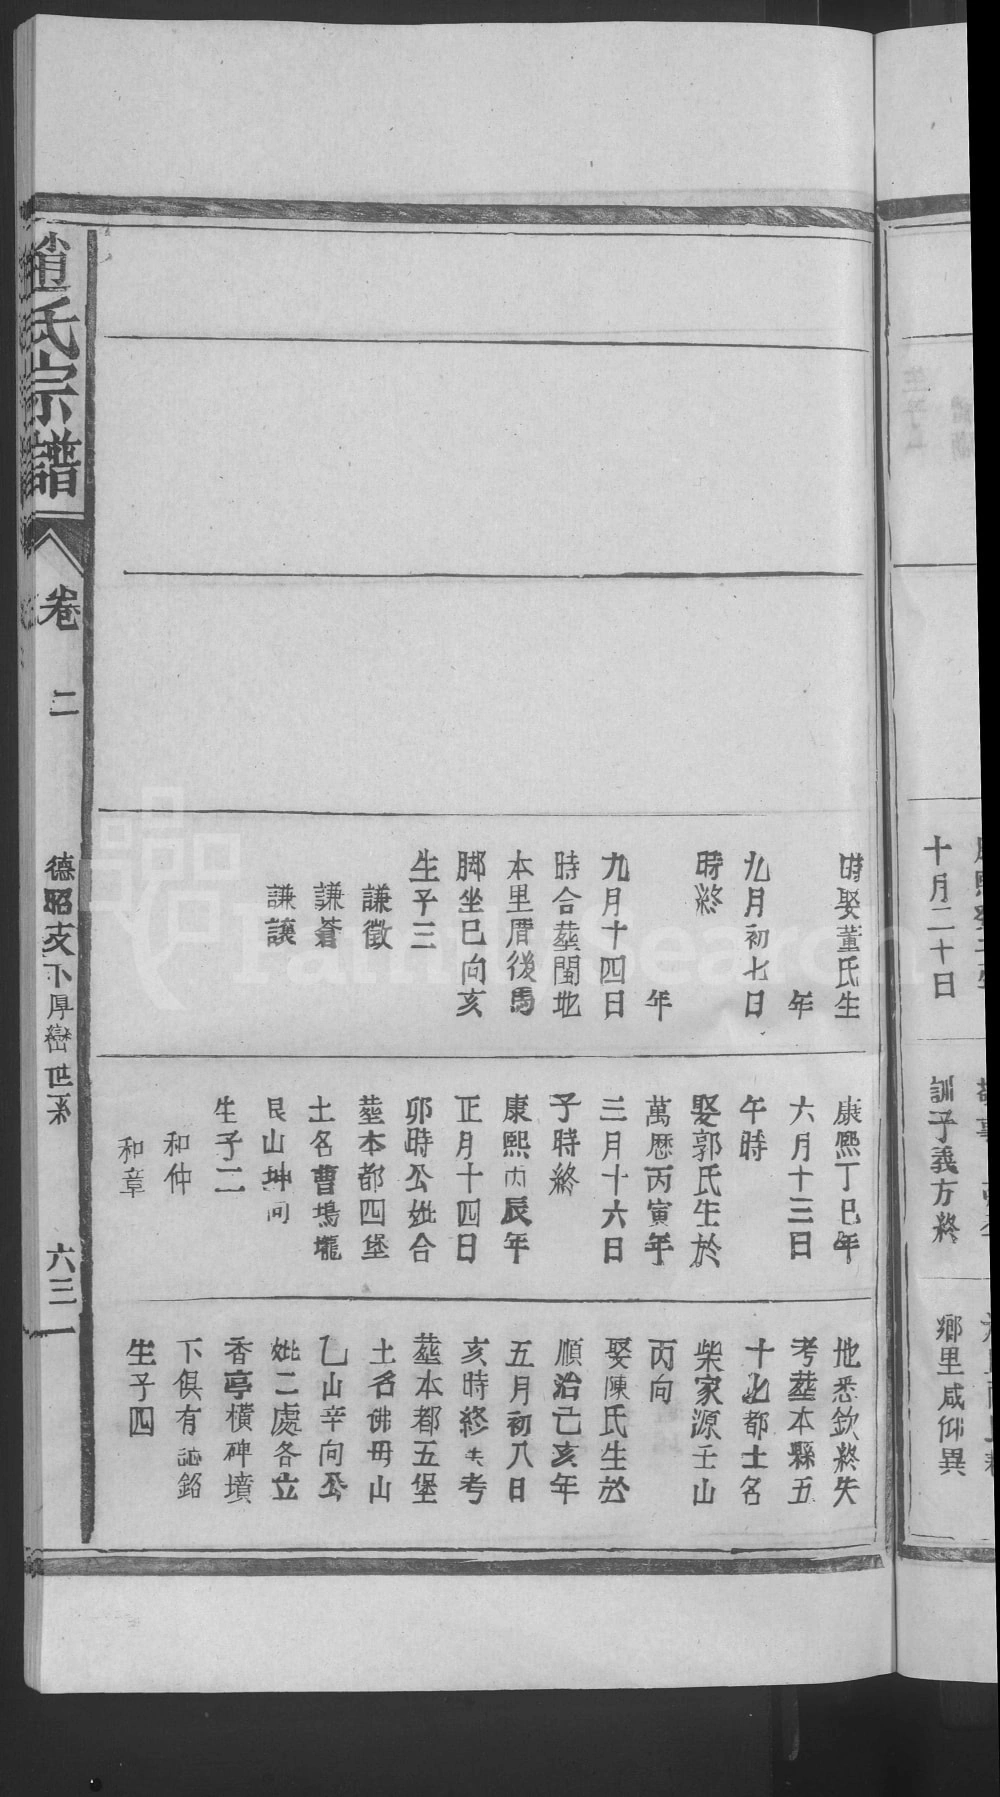 十月二十日
訓子義方終
鄉里咸仰異
時娶董氏生
年
九月初七日
時終
年
九月十四日
時合塟閶地
本里厝後馬
脚坐巳向亥
生子三
謙徵
謙蒼
謙讓
康熙丁巳年
六月十三日
午時
娶郭氏生於
萬歷丙寅年
三月十六日
子時終
康熙丙辰年
正月十四日
卯時公妣合
塟本都四堡
土名曹塢壠
艮山坤向
生子二
和仲
和章
地悉欽終失
考塟本縣五
十北都土名
柴家源壬山
丙向
娶陳氏生於
順治己亥年
五月初八日
亥時終失考
塟本都五堡
土名佛毋山
乙山辛向公
妣二處各立
香亭橫碑墳
下俱有誌銘
生子四
趙氏宗譜
卷 二
德昭支下厚巒世系
六三
FamilySearch